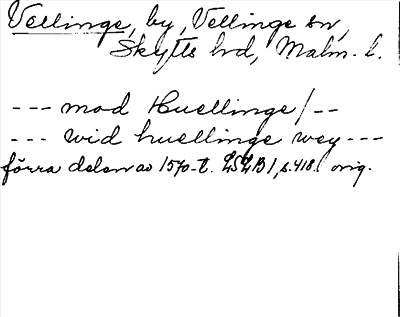 Vellinge, by, Vellinge sn,
Skytts hd, Malm. l.
--- mod Huellinge/--
--- wid huellinge wey ---
förra delen av 1570-t. LSLB1, s. 418. orig.